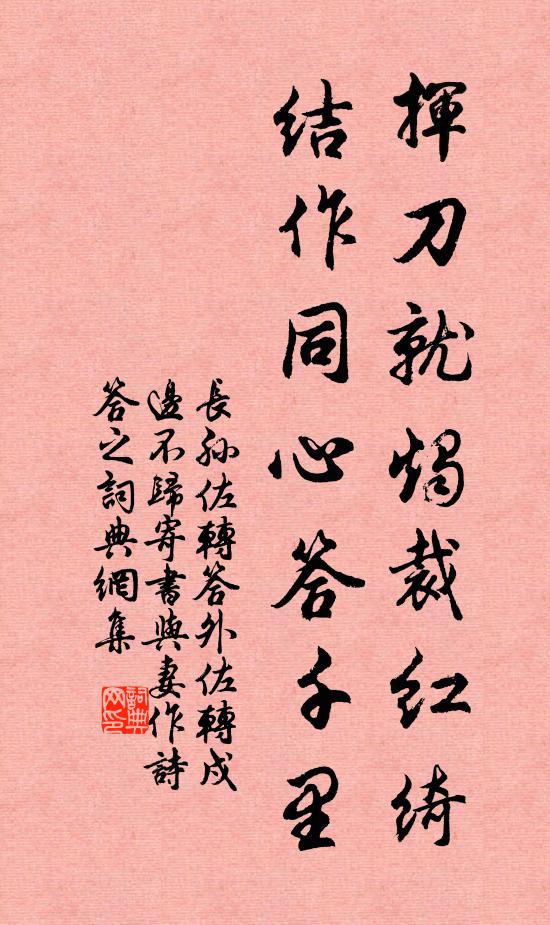 揮刀就燭裁紅綺
結作同心答千里
長孫佐轉答外佐轉戍
邊不歸寄書與妻作詩
答之詞典網集
詞典
网印